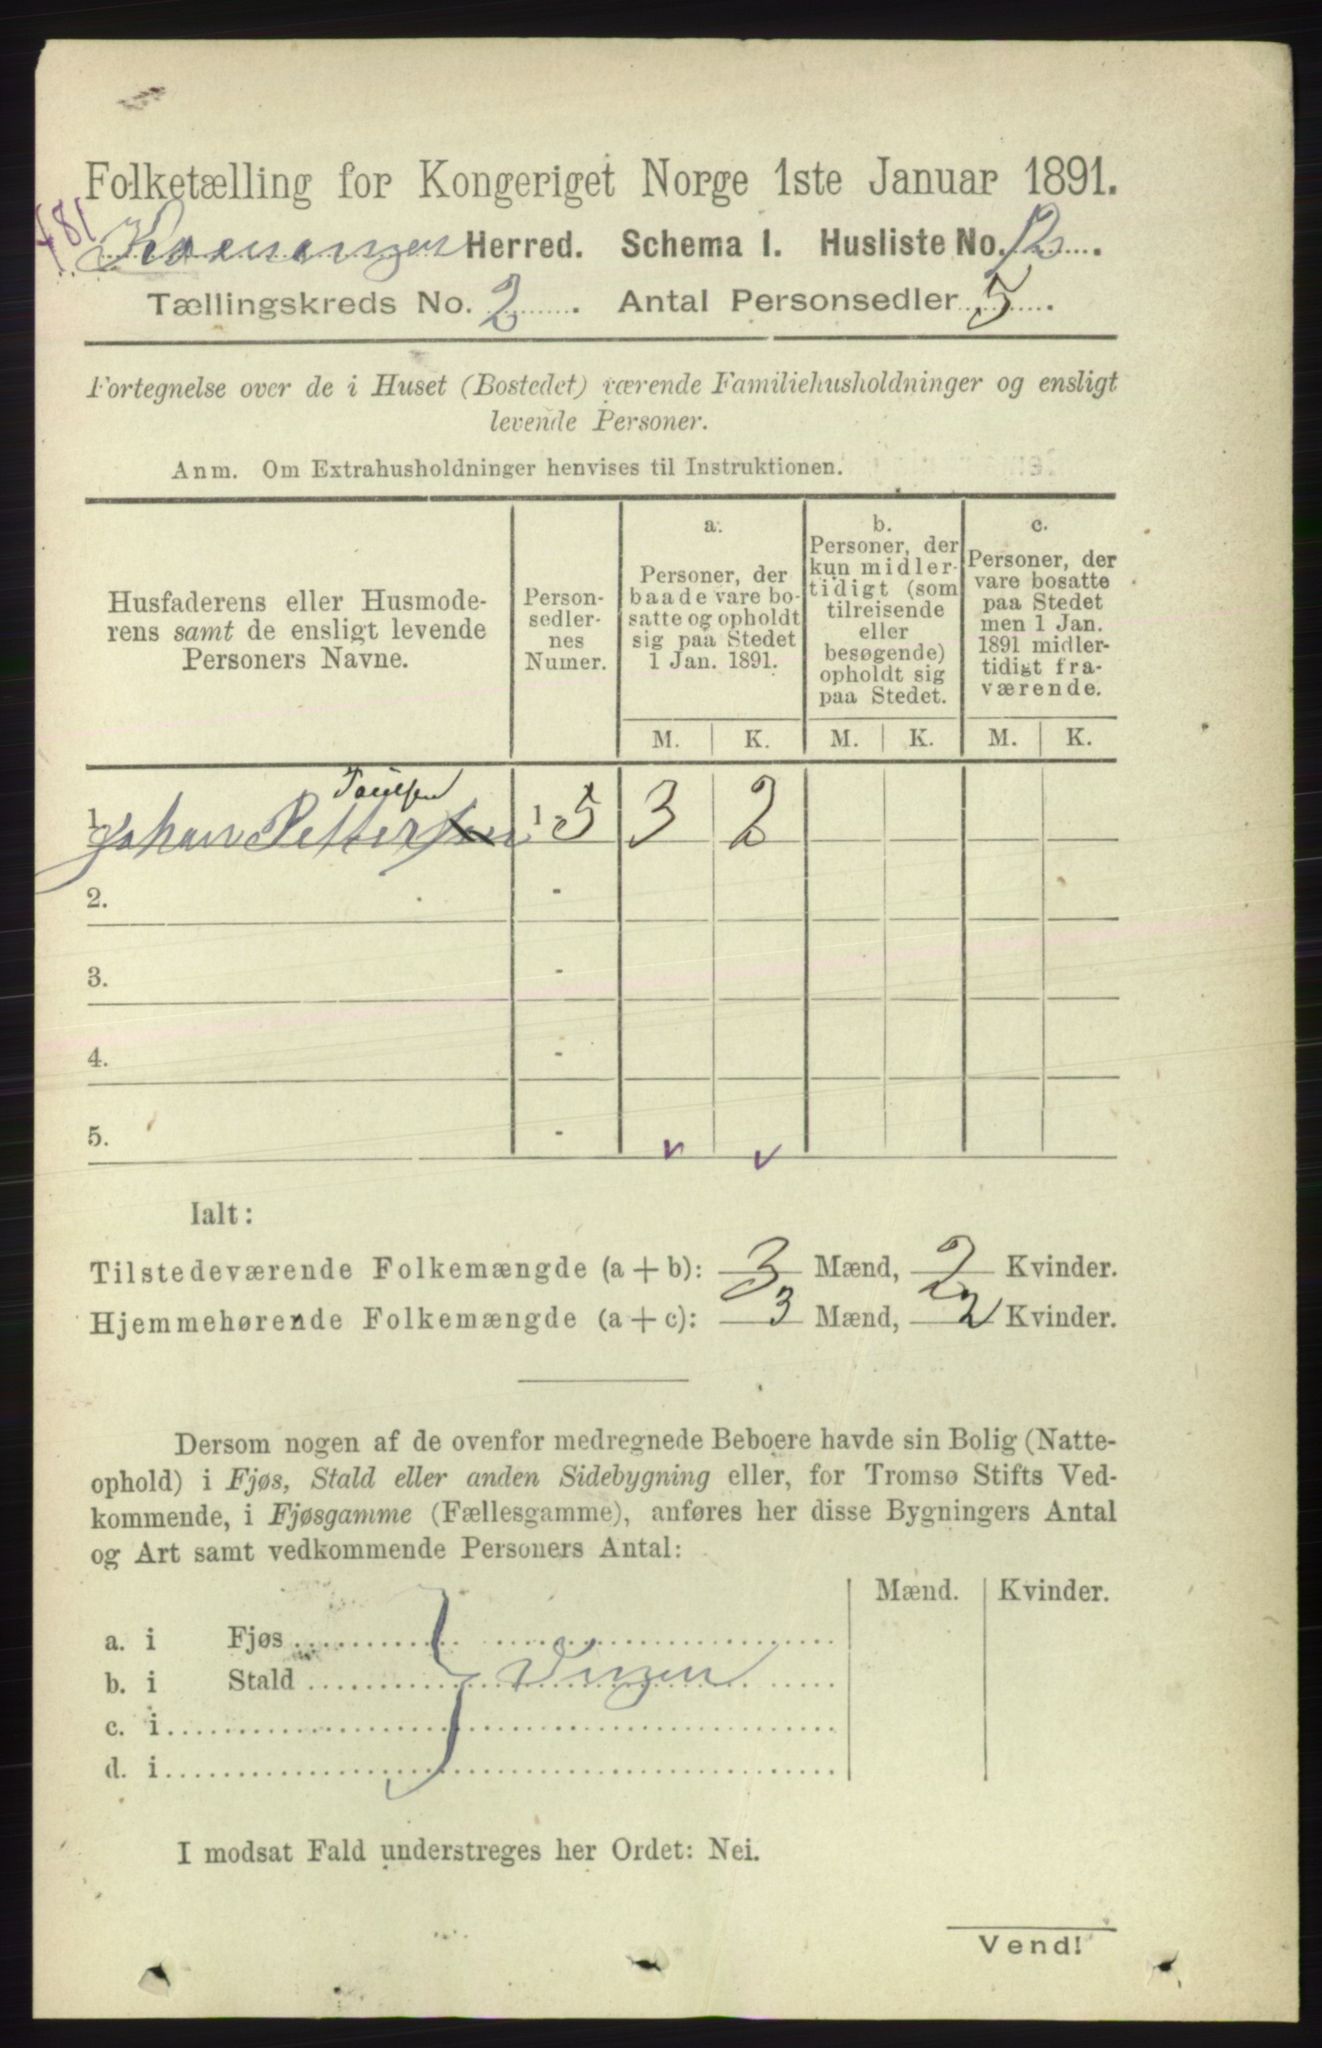 Folketælling for Kongeriget Norge 1ste Januar 1891.
481
Kvænangen Herred. Schema I. Husliste No. 12.
Tællingskreds No. 2. Antal Personsedler 5.
Fortegnelse over de i Huset (Bostedet) værende Familiehusholdninger og ensligt
levende Personer.
Anm. Om Extrahusholdninger henvises til Instruktionen.
Husfaderens eller Husmode-
rens samt de ensligt levende
Personers Navne.
Person-
sedler-
nes
Numer.
a.
Personer, der
baade vare bo-
satte og opholdt
sig paa Stedet
1 Jan. 1891.
b.
Personer, der
kun midler-
tidigt (som
tilreisende
eller
besøgende)
opholdt sig
paa Stedet.
c.
Personer, der
vare bosatte
paa Stedet
men 1 Jan.
1891 midler-
tidigt fra-
værende.
M. K. M. K. M. K.
1. Johan Petter 1-5 3 2
2. -
3. -
4. -
5. -
Ialt:
Tilstedeværende Folkemængde (a+b): 3 Mænd, 2 Kvinder.
Hjemmehørende Folkemængde (a+c): 3 Mænd, 2 Kvinder.
Dersom nogen af de ovenfor medregnede Beboere havde sin Bolig (Natte-
ophold) i Fjøs, Stald eller anden Sidebygning eller, for Tromsø Stifts Ved-
kommende, i Fjøsgamme (Fællesgamme), anføres her disse Bygningers Antal
og Art samt vedkommende Personers Antal:
Mænd. Kvinder.
a. i Fjøs
b. i Stald Ingen
c. i
d. i
I modsat Fald understreges her Ordet: Nei.
Vend!